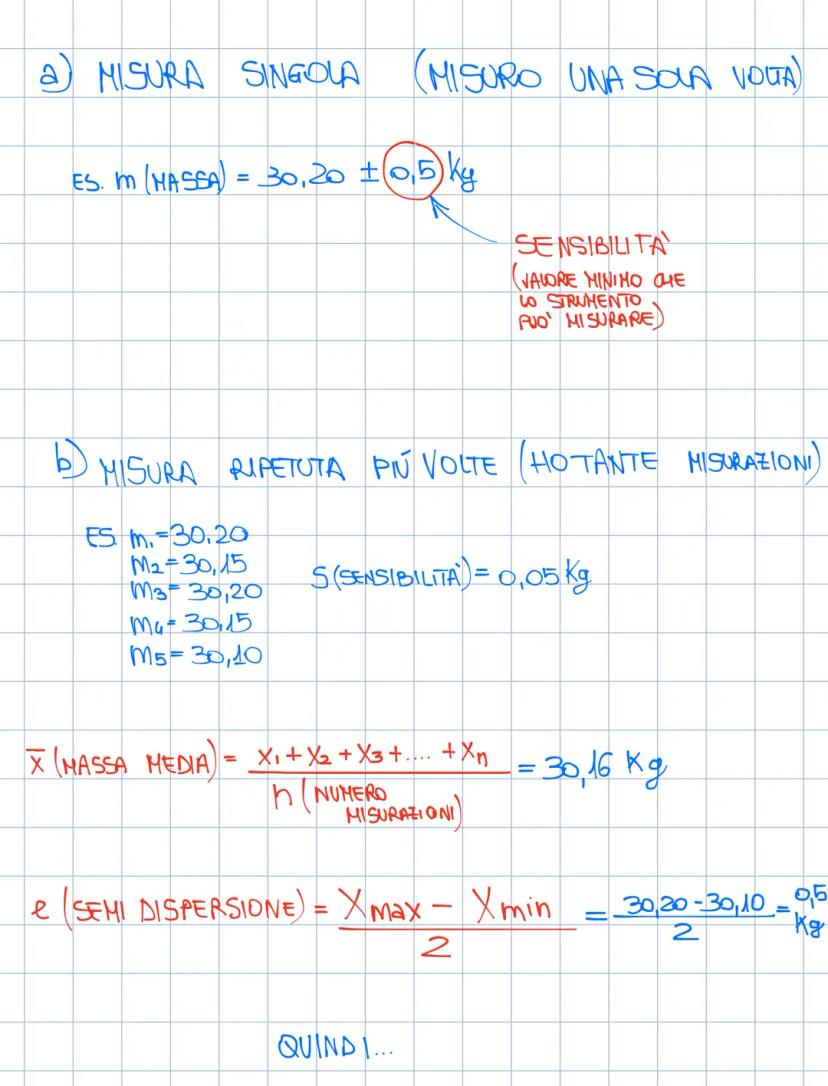 a) MISURA SINGOLA (MISURO UNA SOLA VOLTA)
ES. m (MASSA) = 30,20 ± 0,5 Kg
SENSIBILITÀ
(VALORE MINIMO CHE
LO STRUMENTO
PUO' MISURARE)
b) MISURA RIPETUTA PIÚ VOLTE (HO TANTE MISURAZIONI)
ES. m1 = 30,20
m2 = 30,15
m3 = 30,20
m4 = 30,15
m5 = 30,10
S (SENSIBILITÀ) = 0,05 Kg
x̅ (MASSA MEDIA) = x1 + x2 + x3 + .... + xn / n (NUMERO MISURAZIONI) = 30,16 Kg
e (SEMI DISPERSIONE) = Xmax - Xmin / 2 = 30,20 - 30,10 / 2 = 0,5 Kg
QUINDI...